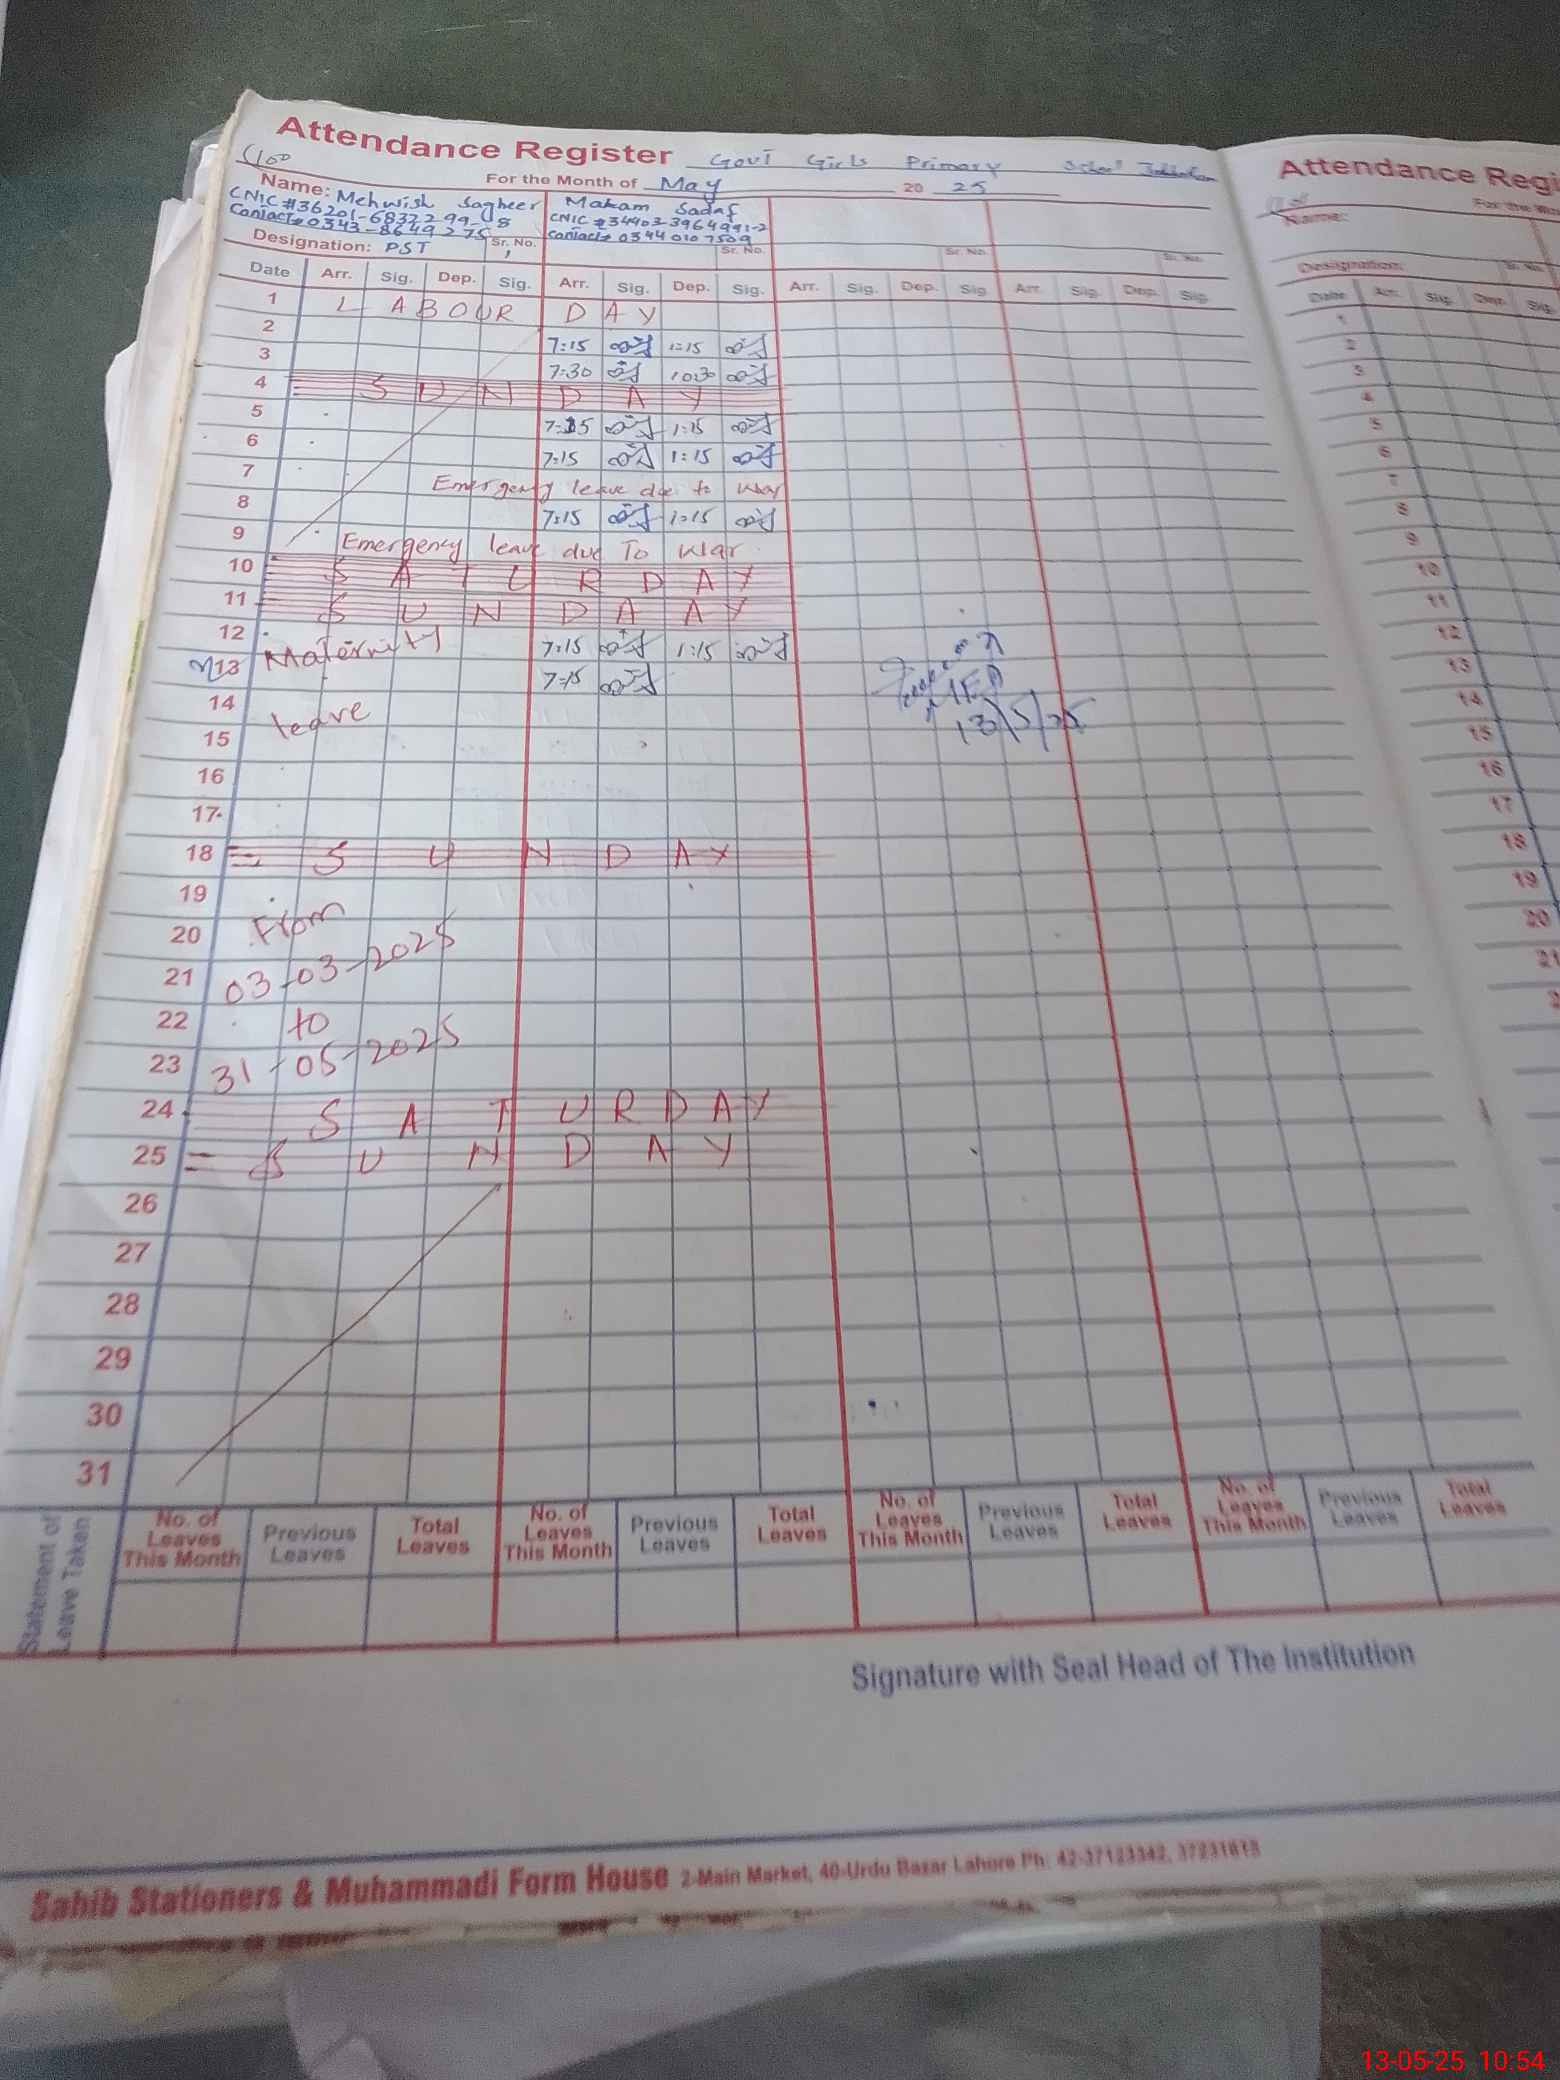 Attendance Register Govt Girls Primary School
For the Month of May 2025
Name: Mehwish Sagheer
CNIC #36201-6832299-8
Contact# 0343-8649275
Designation: PST Sr. No. 1
Maham Sadaf
CNIC #34403-3964991-2
Contact# 03440107509
Sr. No.
Sr. No.
Sr. No.
Date Arr. Sig. Dep. Sig. Arr. Sig. Dep. Sig. Arr. Sig. Dep. Sig. Arr. Sig. Dep. Sig.
1 LABOUR DAY
2 7:15 1:15
3 7:30 10:30
4 SUNDAY
5 7:15 1:15
6 7:15 1:15
7 Emergency leave due to war
8 7:15 1:15
9 Emergency leave due To war.
10 SATURDAY
11 SUNDAY
12 Maternity 7:15 1:15
13 7:15
14 leave
13/5/25
15
16
17
18 SUNDAY
19
20 From
21 03-03-2025
22 to
23 31-05-2025
24 SATURDAY
25 SUNDAY
26
27
28
29
30
31
Statement of Leave Taken
No. of Leaves This Month Previous Leaves Total Leaves No. of Leaves This Month Previous Leaves Total Leaves No. of Leaves This Month Previous Leaves Total Leaves No. of Leaves This Month Previous Leaves Total Leaves
Signature with Seal Head of The Institution
Sahib Stationers & Muhammadi Form House 2-Main Market, 40-Urdu Bazar Lahore Ph: 42-37123342, 37231815
Attendance Regi
For the Mo
Name:
Designation: Sr. No.
Date Arr. Sig. Dep. Sig.
1
2
3
4
5
6
7
8
9
10
11
12
13
14
15
16
17
18
19
20
21
13-05-25 10:54